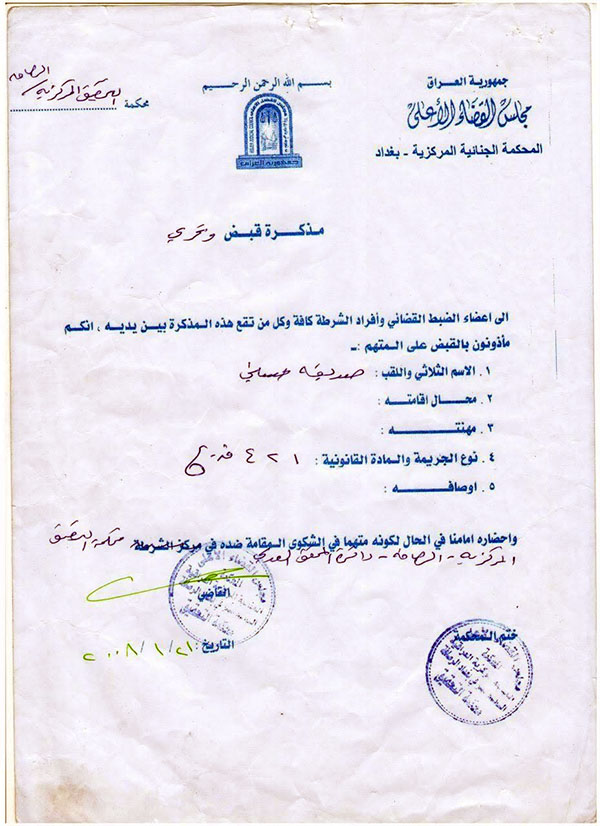 جمهورية العراق
مجلس القضاء الأعلى
المحكمة الجنائية المركزية - بغداد
بسم الله الرحمن الرحيم
جمهورية العراق
الرصافة
محكمة التحقيق المركزية
مذكرة قبض وتحري
الى اعضاء الضبط القضائي وأفراد الشرطة كافة وكل من تقع هذه المذكرة بين يديه ، انكم
مأذونون بالقبض على المتهم :ـ
١ . الاسم الثلاثي واللقب : صديقه حسيني
٢ . محال اقامته :
٣ . مهنته :
٤ . نوع الجريمة والمادة القانونية : ٤٢١ ق.ع
٥ . اوصافه :
واحضاره امامنا في الحال لكونه متهما في الشكوى المقامة ضده في مركز الشرطة محكمة التحقيق
المركزية - الرصافة - دائرة المحقق العدلي
القاضي
التاريخ : ٢٠٠٨/١/٢١
ختم المحكمة